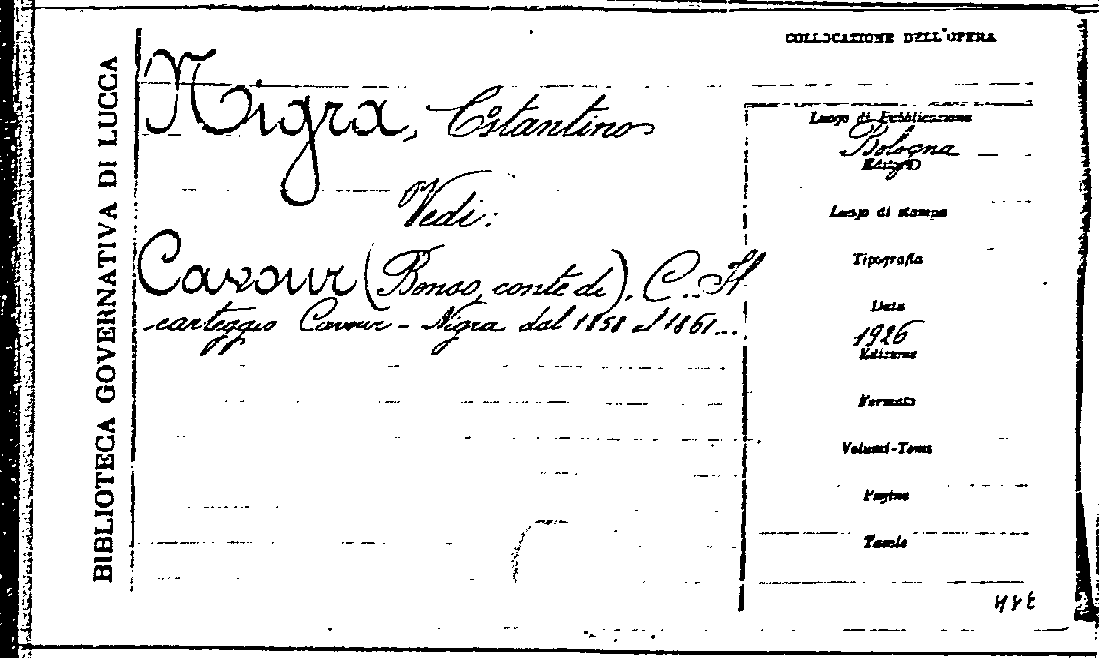 BIBLIOTECA GOVERNATIVA DI LUCCA
COLLOCAZIONE DELL'OPERA
Nigra, Costantino
Vedi:
Cavour (Benso, conte di). C. Il
carteggio Cavour - Nigra dal 1858 al 1861...
Luogo di Pubblicazione
Bologna
Luogo di stampa
Tipografia
Data
1926
Edizione
Formato
Volumi-Tomi
Pagine
Tavole